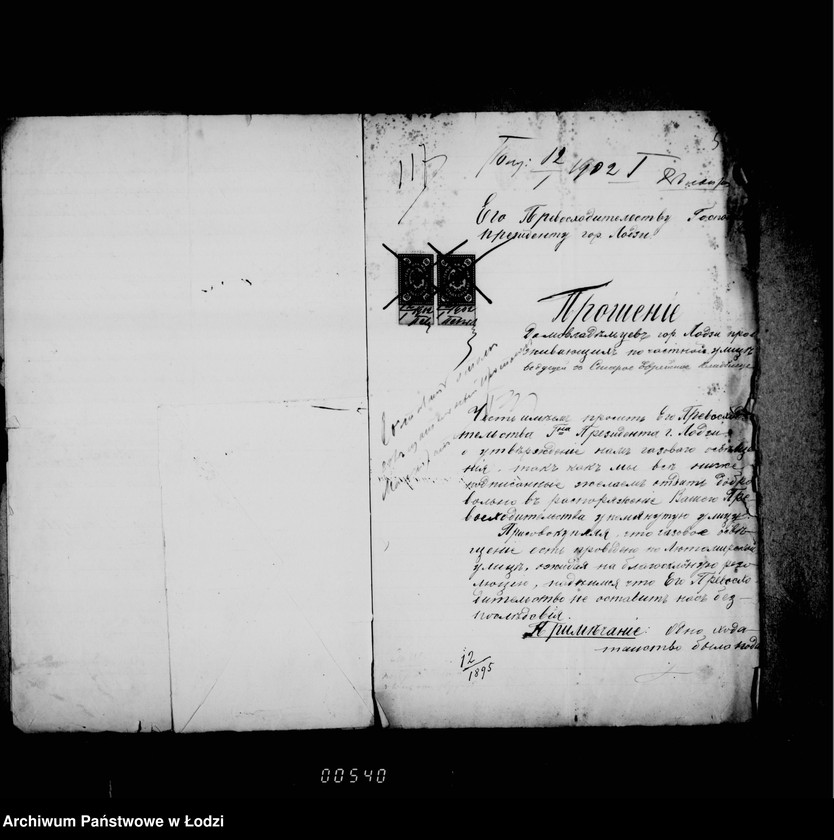 117
Пол: 12/1 1902 I
Его Превосходительству Господ
Президенту гор. Лодзи
Прошеніе
Домовладѣльцевъ гор. Лодзи про
живающихъ по частной улицѣ
ведущей до Старого Еврейского Кладбища
Честь имѣемъ просить Его Превосходи
тельства Гна Президента г. Лодзи
о утвержденіе намъ газоваго освѣще
нія, такъ какъ мы всѣ ниже
подписанные желаемъ отдать добро
вольно въ распоряженіе Вашего Пре
восходительства упомянутую улицу.
Присовокупляя, что газовое освѣ
щеніе есть проведено по Лютомирской
улицѣ, ожидая на благосклонную резо
люцію, надѣемся что Его Превосхо
дительство не оставитъ насъ без
послѣдствія.
Примѣчаніе: Одно хода
тайство было пода
12/1895
00540
Archiwum Państwowe w Łodzi